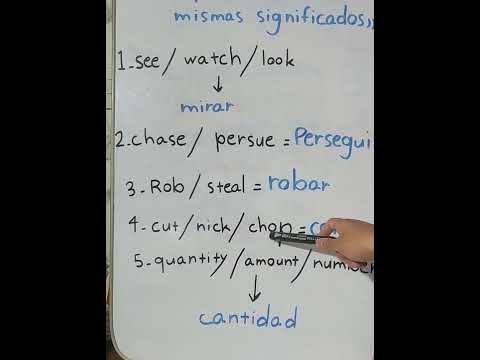 mismas significados,,
1-see/ watch/look
mirar
2-chase/ persue = Persegui
3- Rob/ steal = robar
4- cut/nick/chop = co
5-quantity/amount/number
cantidad